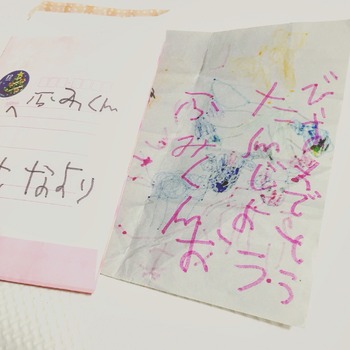 ふみくん
へ
なより
ふみくんお
たんじよう
びおめでとう